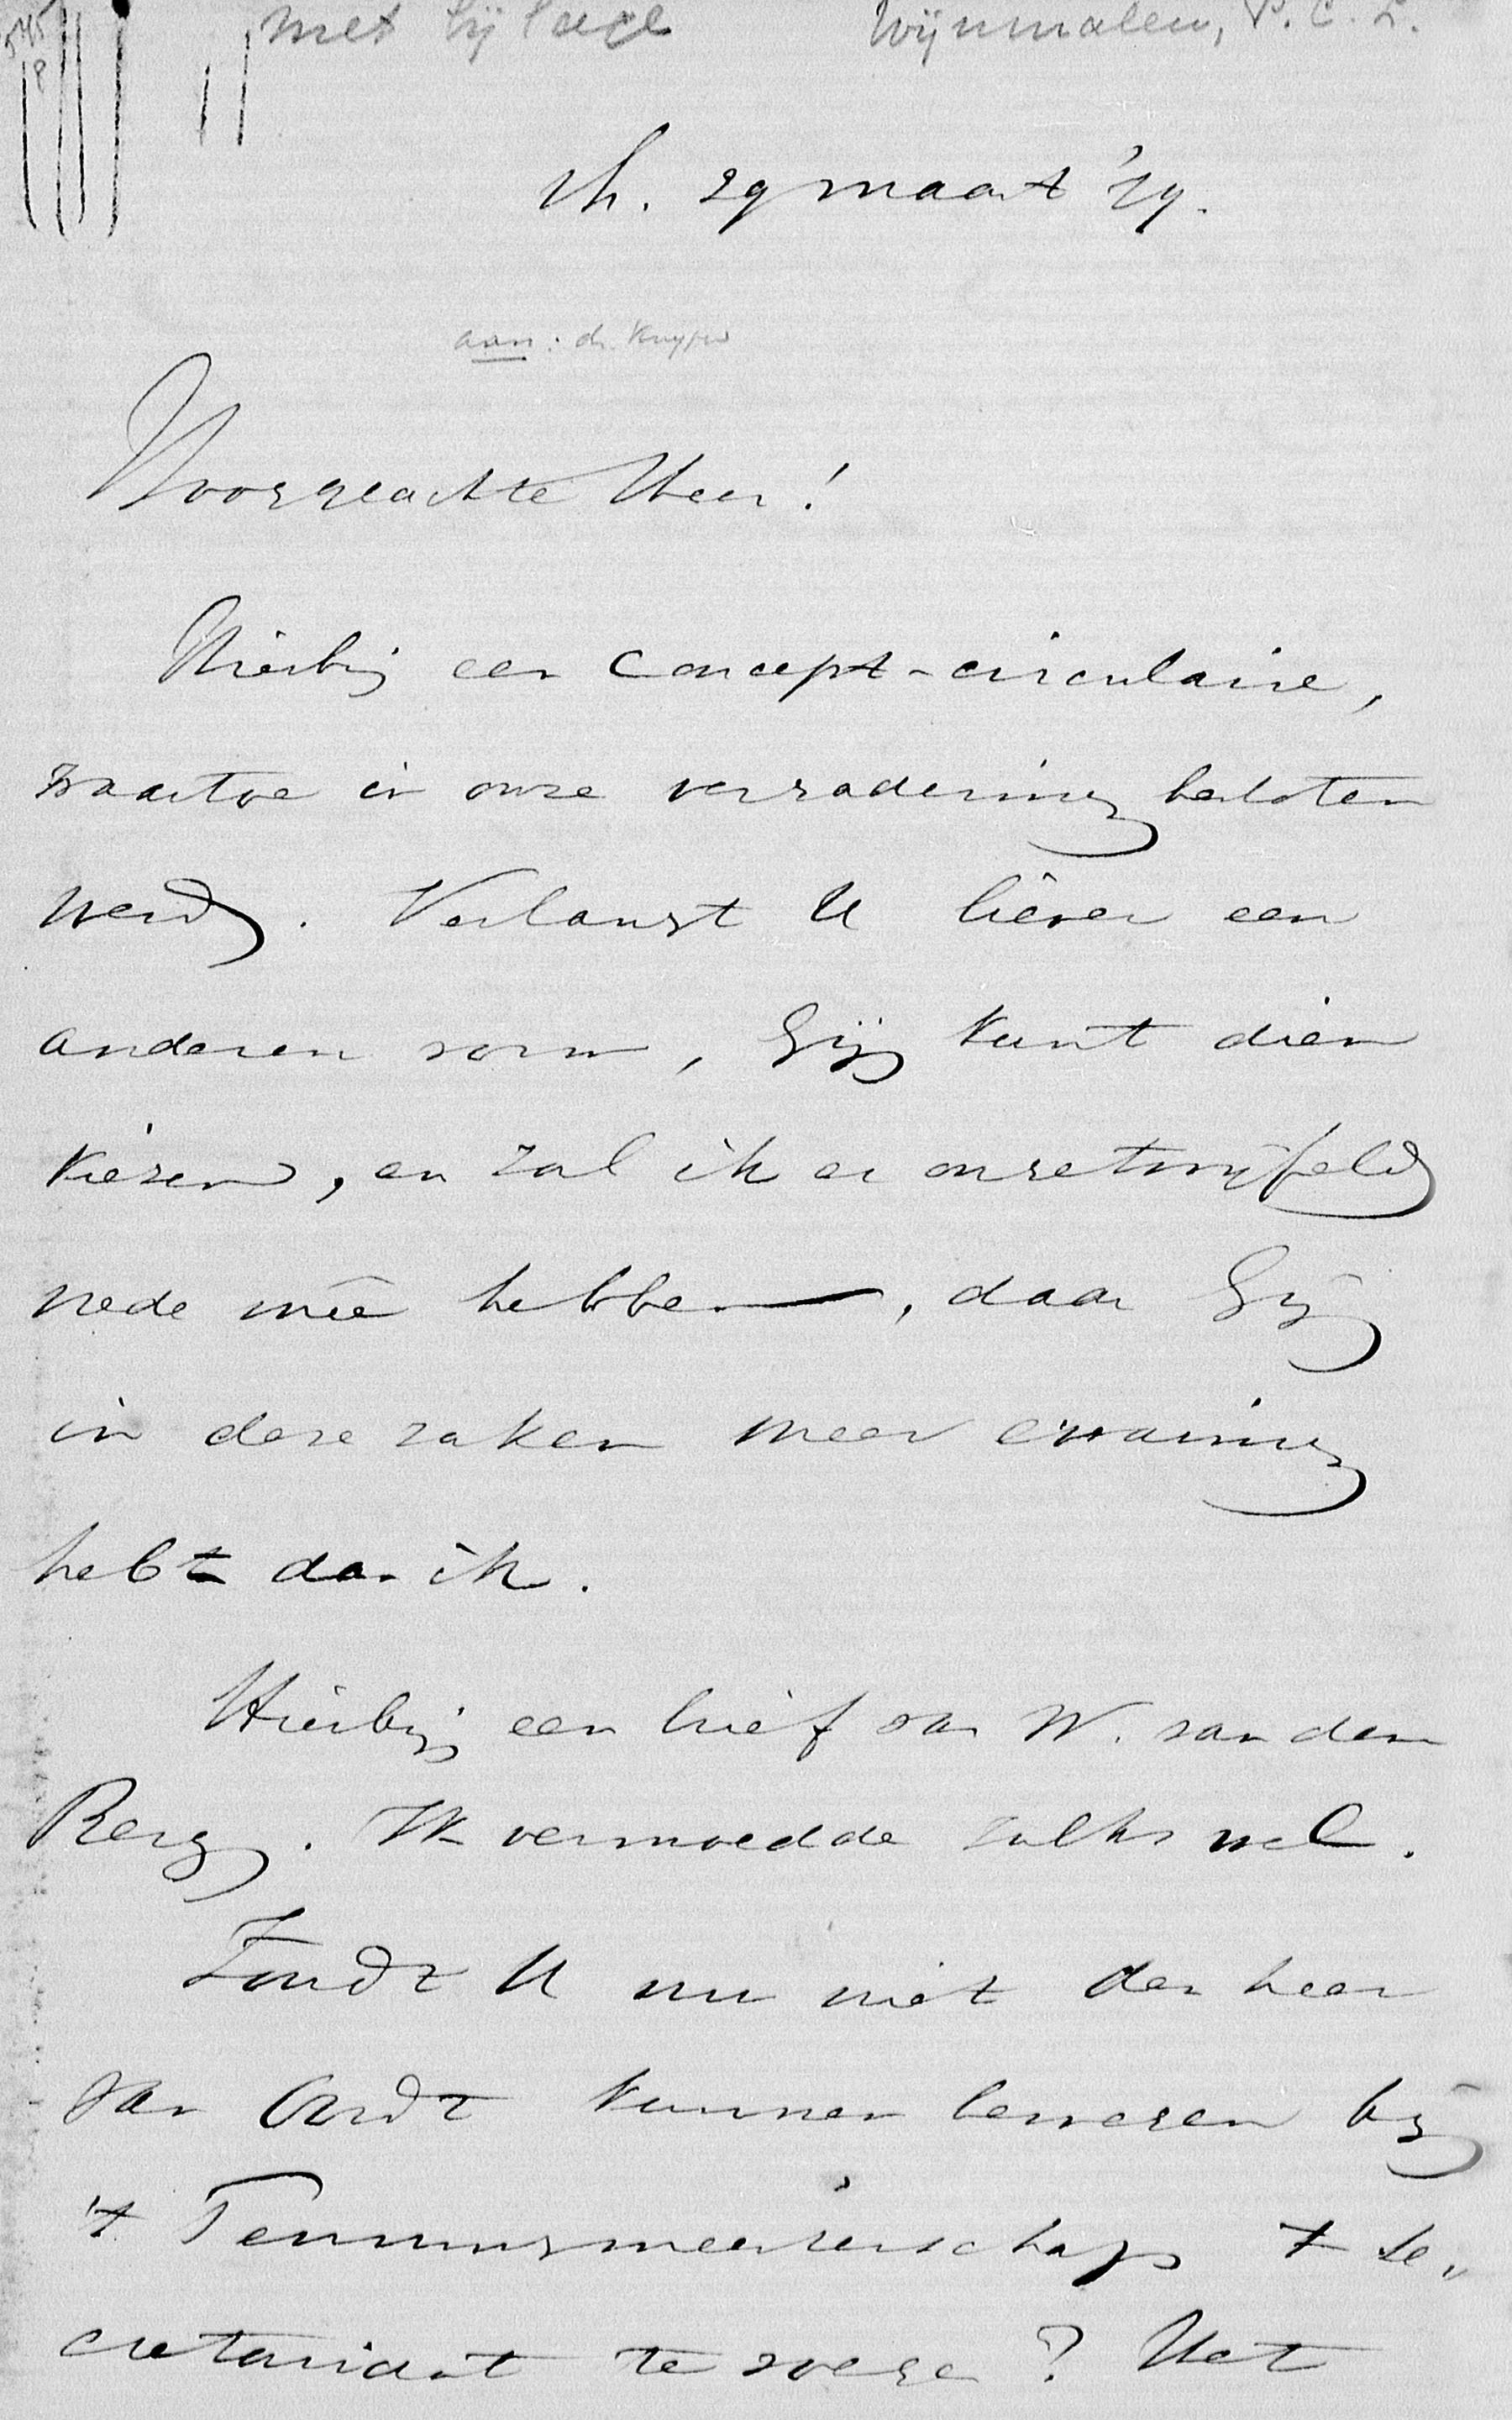 met bijlage Wijnmalen, T. C. L.
545
8
Th. 29 maart '79.
aan: dr. Kuyper
Hooggeachte Heer!
Hierbij een Concept-circulaire,
waartoe in onze vergadering besloten
werd. Verlangt U liever een
anderen vorm, Gij kunt dien
kiezen, en zal ik er ongetwijfeld
vrede meê hebben, daar Gij
in deze zaken meer ervaring
hebt dan ik.
Hierbij een brief van W. van den
Berg. Ik vermoedde zulks wel.
Zoudt U nu niet den heer
van Oordt kunnen bewegen bij
't Penningmeesterschap 't Se„
cretariaat te voegen? Het